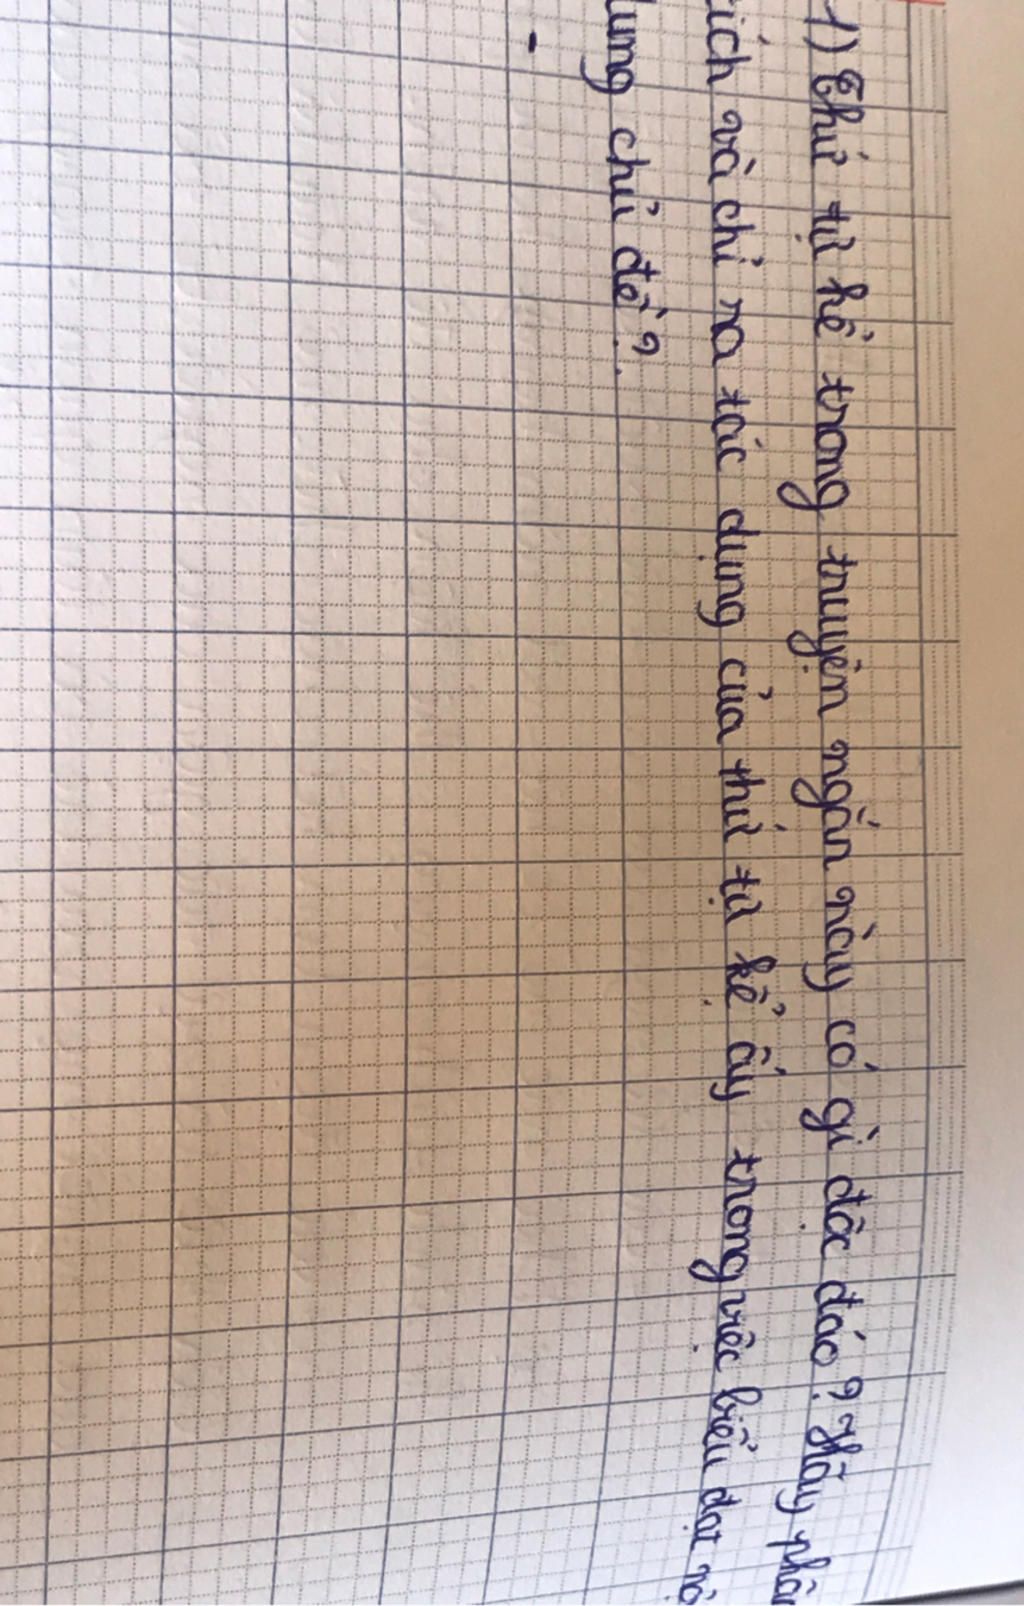 1) Thứ tự kể trong truyện ngắn này có gì độc đáo? Hãy phân
tích và chỉ ra tác dụng của thứ tự kể ấy trong việc biểu đạt nộ
dung chủ đề?
-